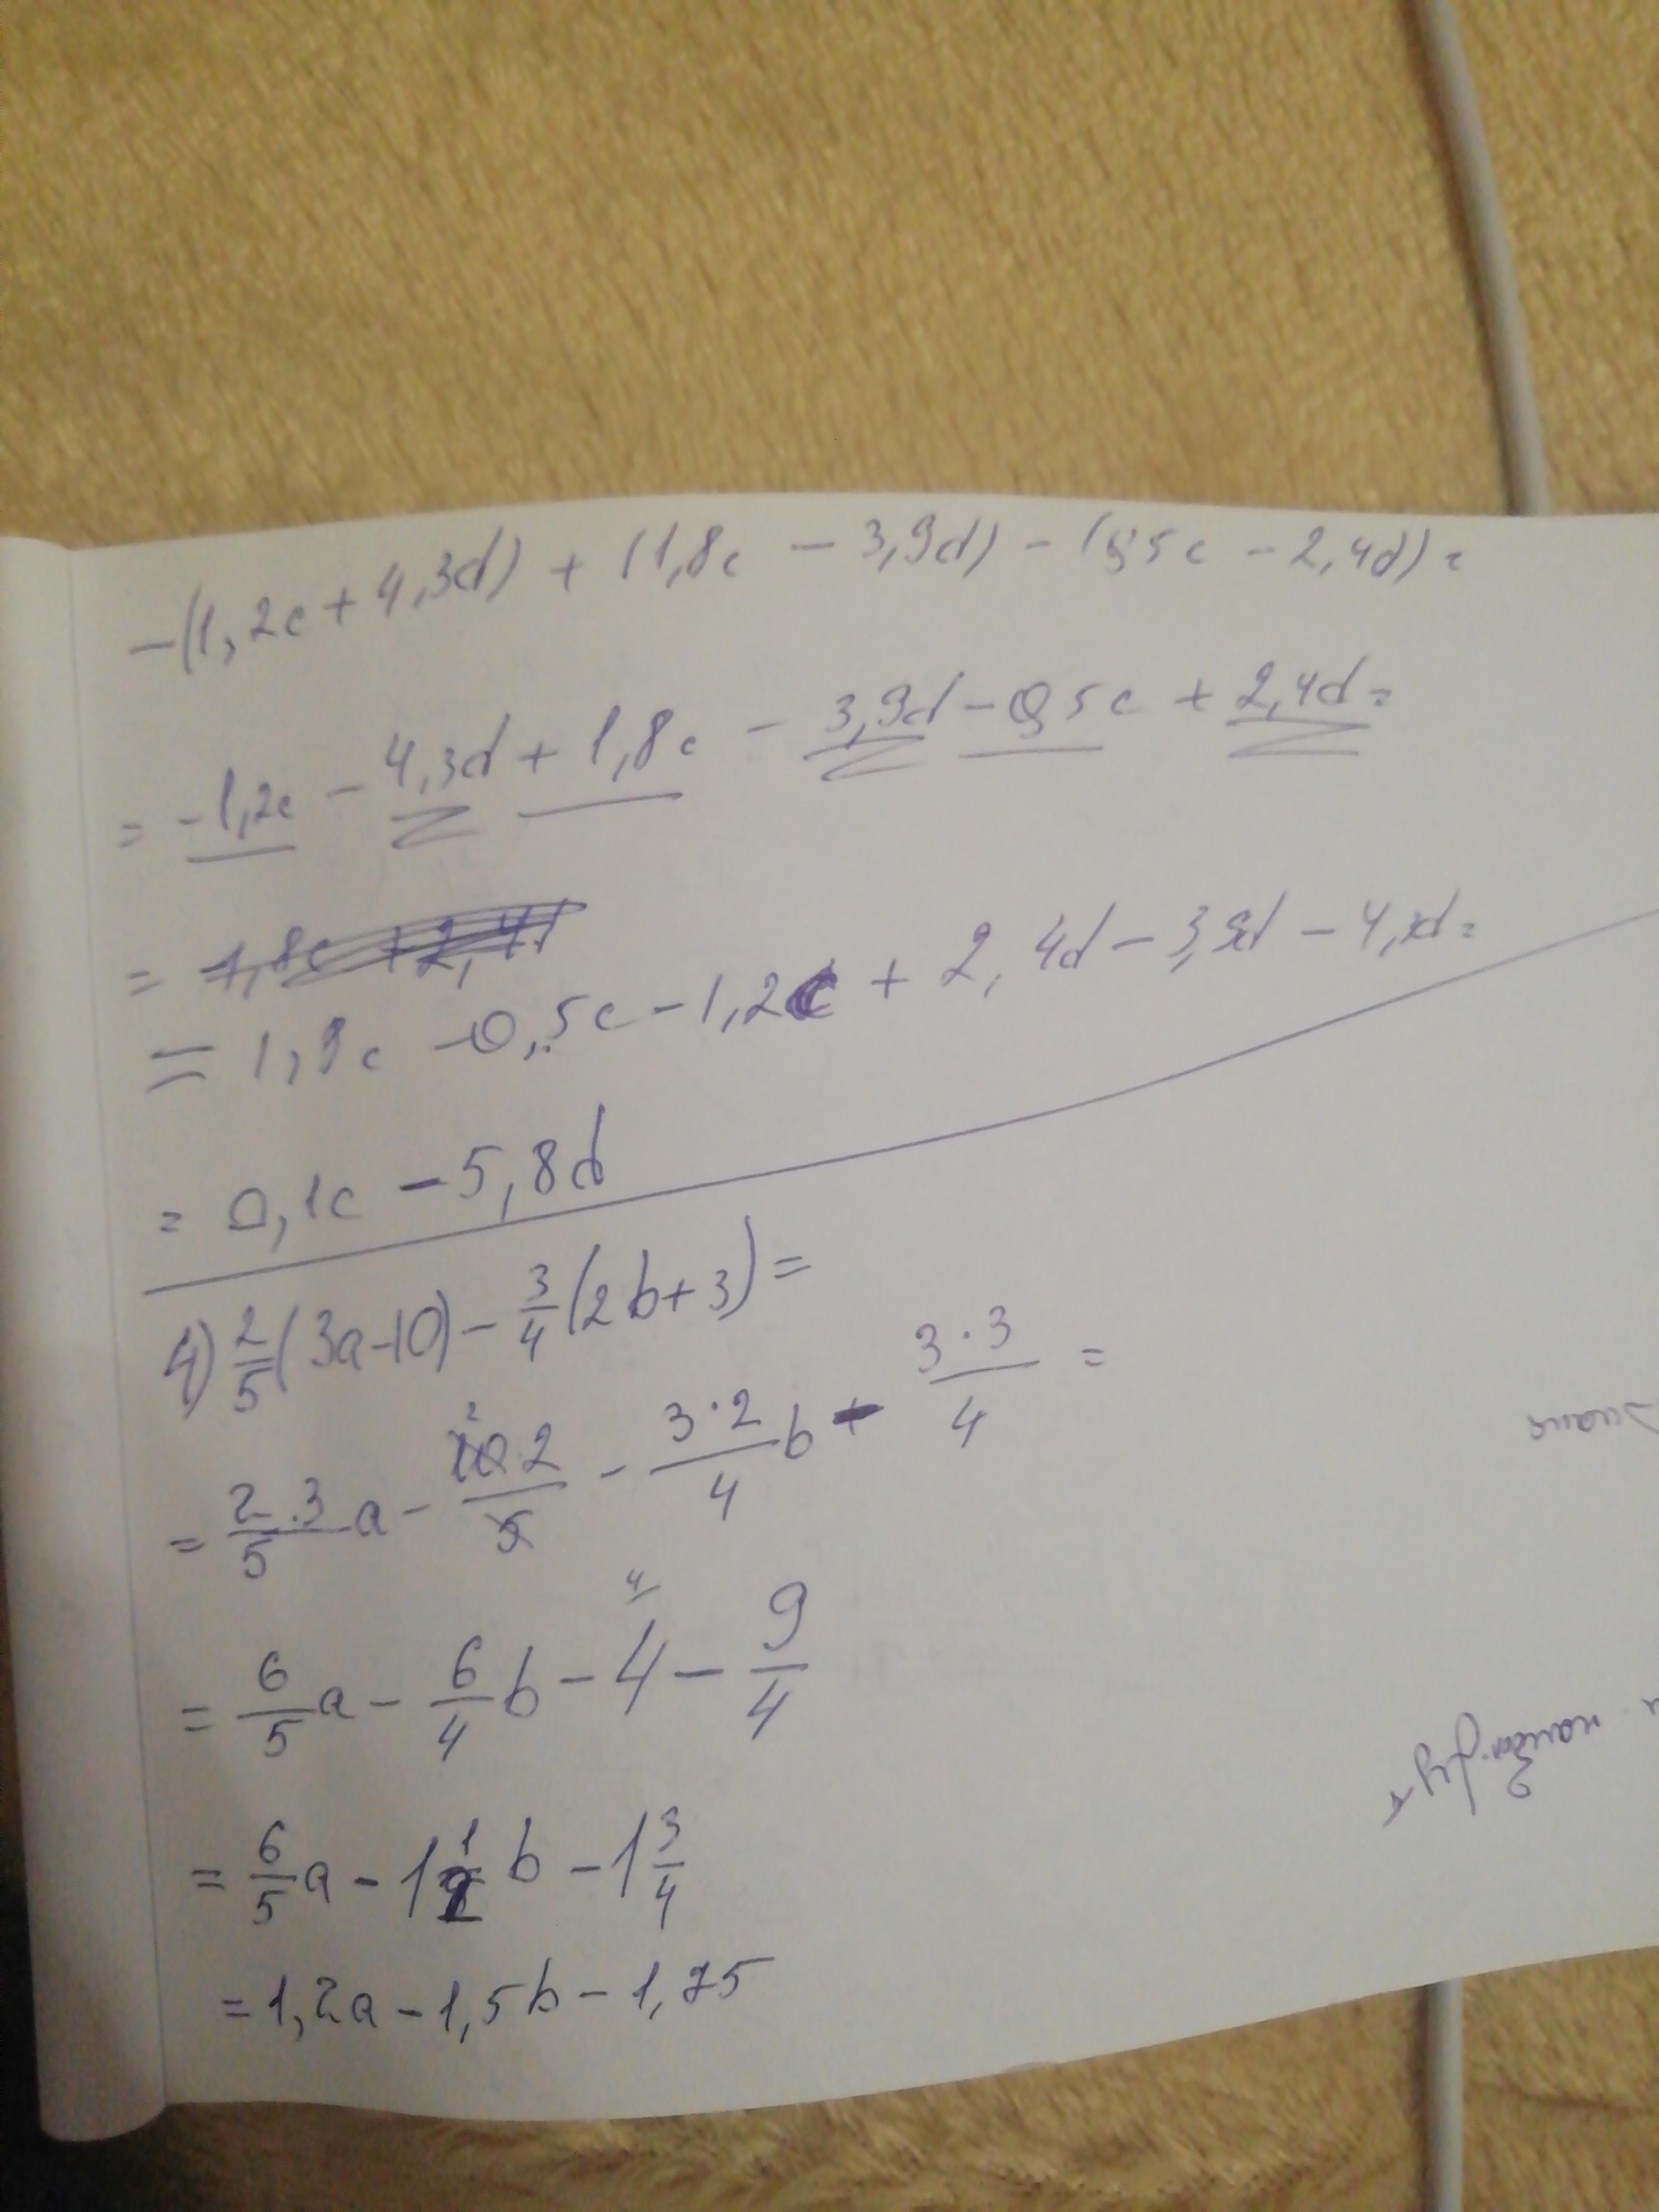 -(1,2c + 4,3d) + (1,8c - 3,9d) - (0,5c - 2,4d) =
= -1,2c - 4,3d + 1,8c - 3,9d - 0,5c + 2,4d =
= 1,8c + 2,4d
= 1,8c - 0,5c - 1,2c + 2,4d - 3,9d - 4,3d =
= 0,1c - 5,8d
4) 2/5 (3a - 10) - 3/4 (2b + 3) =
= 2·3/5 a - 10·2/5 - 3·2/4 b - 3·3/4 =
= 6/5 a - 6/4 b - 4 - 9/4
= 6/5 a - 1 1/2 b - 1 3/4
= 1,2a - 1,5b - 1,75